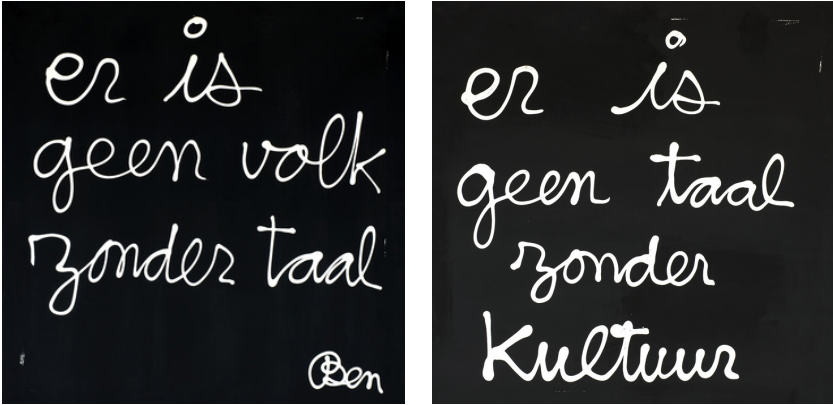 er is
geen volk
zonder taal
Ben
er is
geen taal
zonder
Kultuur